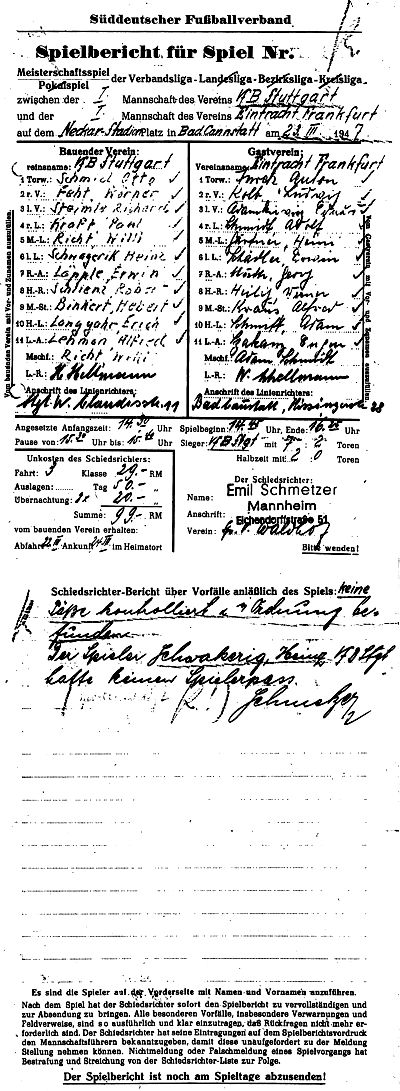 Süddeutscher Fußballverband
Spielbericht für Spiel Nr.
Meisterschaftsspiel
Pokalspiel
der Verbandsliga-Landesliga-Bezirksliga-Kreisliga
zwischen der I. Mannschaft des Vereins VfB Stuttgart
und der I. Mannschaft des Vereins Eintracht Frankfurt
auf dem Neckar-Stadion Platz in Bad Cannstatt am 23. III 1947
Bauender Verein:
Vereinsname: VfB Stuttgart
1 Torw. Schmid Otto
2 r.V.: Feht Werner
3 l.V.: Steimle Richard
4 r.L.: Kraft Paul
5 M.-L.: Richt Willi
6 l.L.: Schwagerik Heinz
7 R.-A.: Läpple Erwin
8 H.-R.: Schlienz Rober
9 M.-St.: Binkert, Hebert
10 H.-L.: Langjahr Erich
11 L.-A.: Lehman Alfred
Mschf. Richt Willi
L.-R.:
Anschrift des Linienrichters:
Gastverein:
Vereinsname: Eintracht Frankfurt
1 Torw.
2 r.V.: Kolb Ludwig
3 l.V.:
4 r.L.: Schmidt Adolf
5 M.-L.:
6 l.L.: Erwin
7 R.-A.:
8 H.-R.: Heilig Werner
9 M.-St.: Kraus Alfred
10 H.-L.: Schmitt, Adam
11 L.-A.:
Mschf.: Adam Schmitt
L.-R.:
Anschrift des Linienrichters:
Bad Cannstatt,
Vom bauenden Verein mit Vor- und Zunamen auszufüllen
Vom Gastverein mit Vor- und Zunamen auszufüllen
Angesetzte Anfangszeit: 14.30 Uhr Spielbeginn: 14.45 Uhr, Ende: 16.25 Uhr
Pause von 15.30 Uhr bis: 15.40 Uhr Sieger: VfB Stgt mit 7 : 2 Toren
Halbzeit mit 2 : 0 Toren
Unkosten des Schiedsrichters:
Fahrt: 3 Klasse 29.- RM
Auslagen: Tag 50.- RM
Übernachtung: 2x 20.- RM
Summe: 99.- RM
vom bauenden Verein erhalten:
Abfahrt 22. III Ankunft 24. III im Heimatort
Der Schiedsrichter:
Name: Emil Schmetzer
Mannheim
Anschrift: Eichendorffstraße 51
Verein: Waldhof
Bitte wenden!
Schiedsrichter-Bericht über Vorfälle anläßlich des Spiels: keine
Päße kontrolliert u. in Ordnung be-
funden.
Der Spieler Schwakerig, Heinz VfB Stgt
hatte keinen Spielerpass.
Schmetzer
Es sind die Spieler auf der Vorderseite mit Namen und Vornamen anzuführen.
Nach dem Spiel hat der Schiedsrichter sofort den Spielbericht zu vervollständigen und
zur Absendung zu bringen. Alle besonderen Vorfälle, insbesondere Verwarnungen und
Feldverweise, sind so ausführlich und klar einzutragen, daß Rückfragen nicht mehr er-
forderlich sind. Der Schiedsrichter hat seine Eintragungen auf dem Spielberichtsvordruck
den Mannschaftsführern bekanntzugeben, damit diese unaufgefordert zu der Meldung
Stellung nehmen können. Nichtmeldung oder Falschmeldung eines Spielvorgangs hat
Bestrafung und Streichung von der Schiedsrichter-Liste zur Folge.
Der Spielbericht ist noch am Spieltage abzusenden!